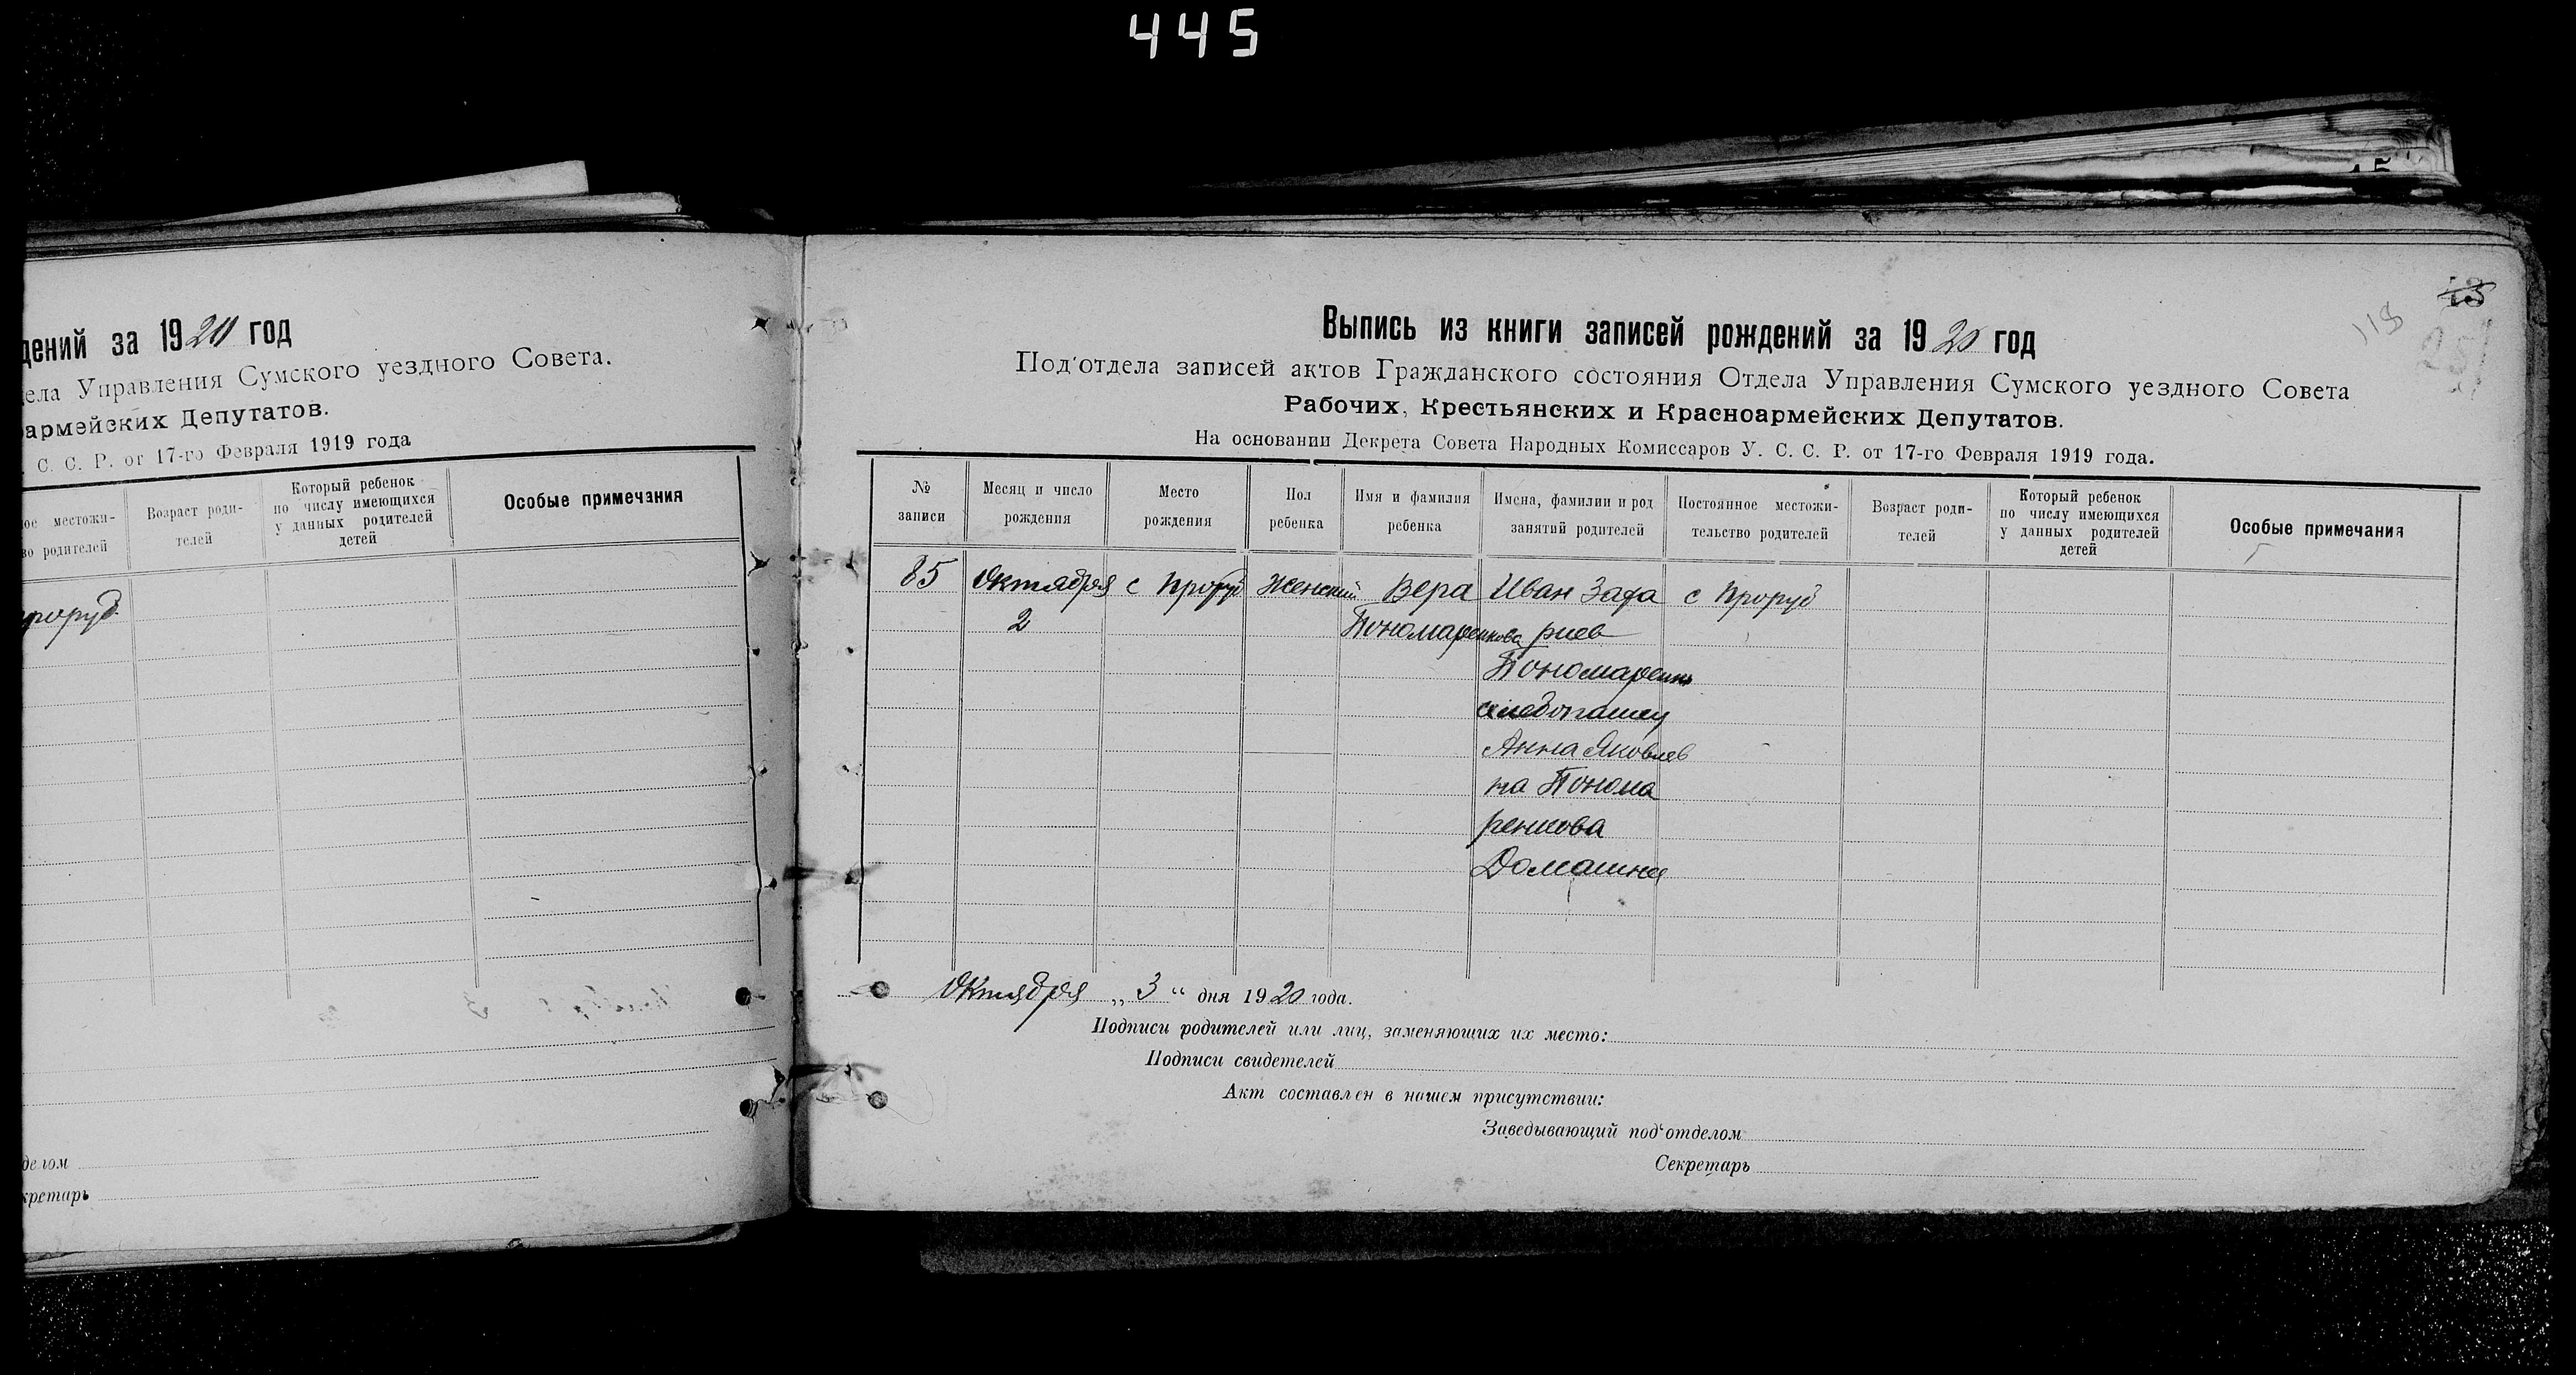 445
дений за 1920 год
ела Управления Сумского уездного Совета.
армейских Депутатов.
. С. С. Р. от 17-го Февраля 1919 года
ое местожи-
во родителей
Возраст роди-
телей
Который ребенок
по числу имеющихся
у данных родителей
детей
Особые примечания
проруб
делом
кретарь
118
Выпись из книги записей рождений за 1920 год
Под'отдела записей актов Гражданского состояния Отдела Управления Сумского уездного Совета
Рабочих, Крестьянских и Красноармейских Депутатов.
На основании Декрета Совета Народных Комиссаров У. С. С. Р. от 17-го Февраля 1919 года.
№
записи
Месяц и число
рождения
Место
рождения
Пол
ребенка
Имя и фамилия
ребенка
Имена, фамилии и род
занятий родителей
Постоянное местожи-
тельство родителей
Возраст роди-
телей
Который ребенок
по числу имеющихся
у данных родителей
детей
Особые примечания
85 Октября с Проруб Женский Вера Иван Заха с Проруб
2 Пономаренкова риев
Пономаренко
хлебопашец
Анна Яковлев
на Понома
ренкова
Домашня
Октября „ 3 “ дня 1920 года.
Подписи родителей или лиц, заменяющих их место:
Подписи свидетелей
Акт составлен в нашем присутствии:
Заведывающий под'отделом
Секретарь